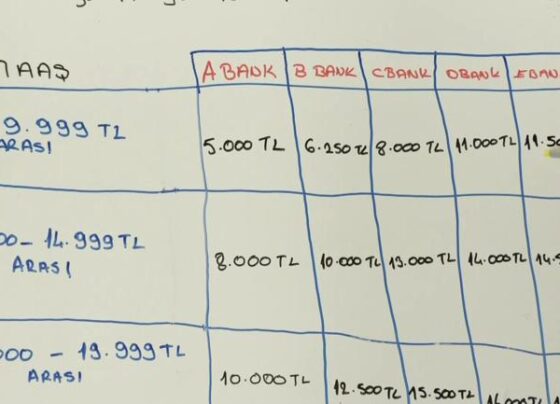 MAAŞ A BANK B BANK C BANK D BANK E BANK
9.999 TL
ARASI
5.000 TL 6.250 TL 8.000 TL 11.000 TL
14.999 TL
ARASI
8.000 TL 10.000 TL 13.000 TL 14.000 TL
000 - 19.999 TL
ARASI
10.000 TL 12.500 TL 15.500 TL